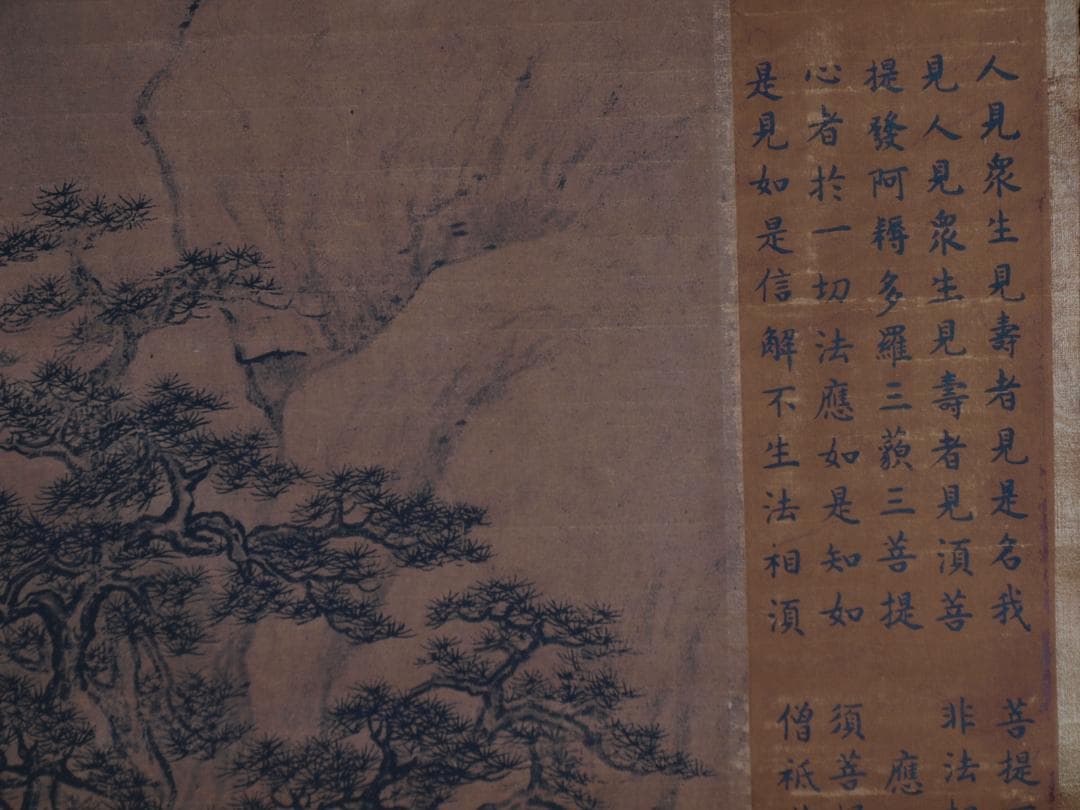 人見眾生見壽者見是名我
見人見眾生見壽者見湏菩
提發阿耨多羅三藐三菩提
心者於一切法應如是知如
是見如是信解不生法相湏
菩提
非法
應
須菩
僧祇